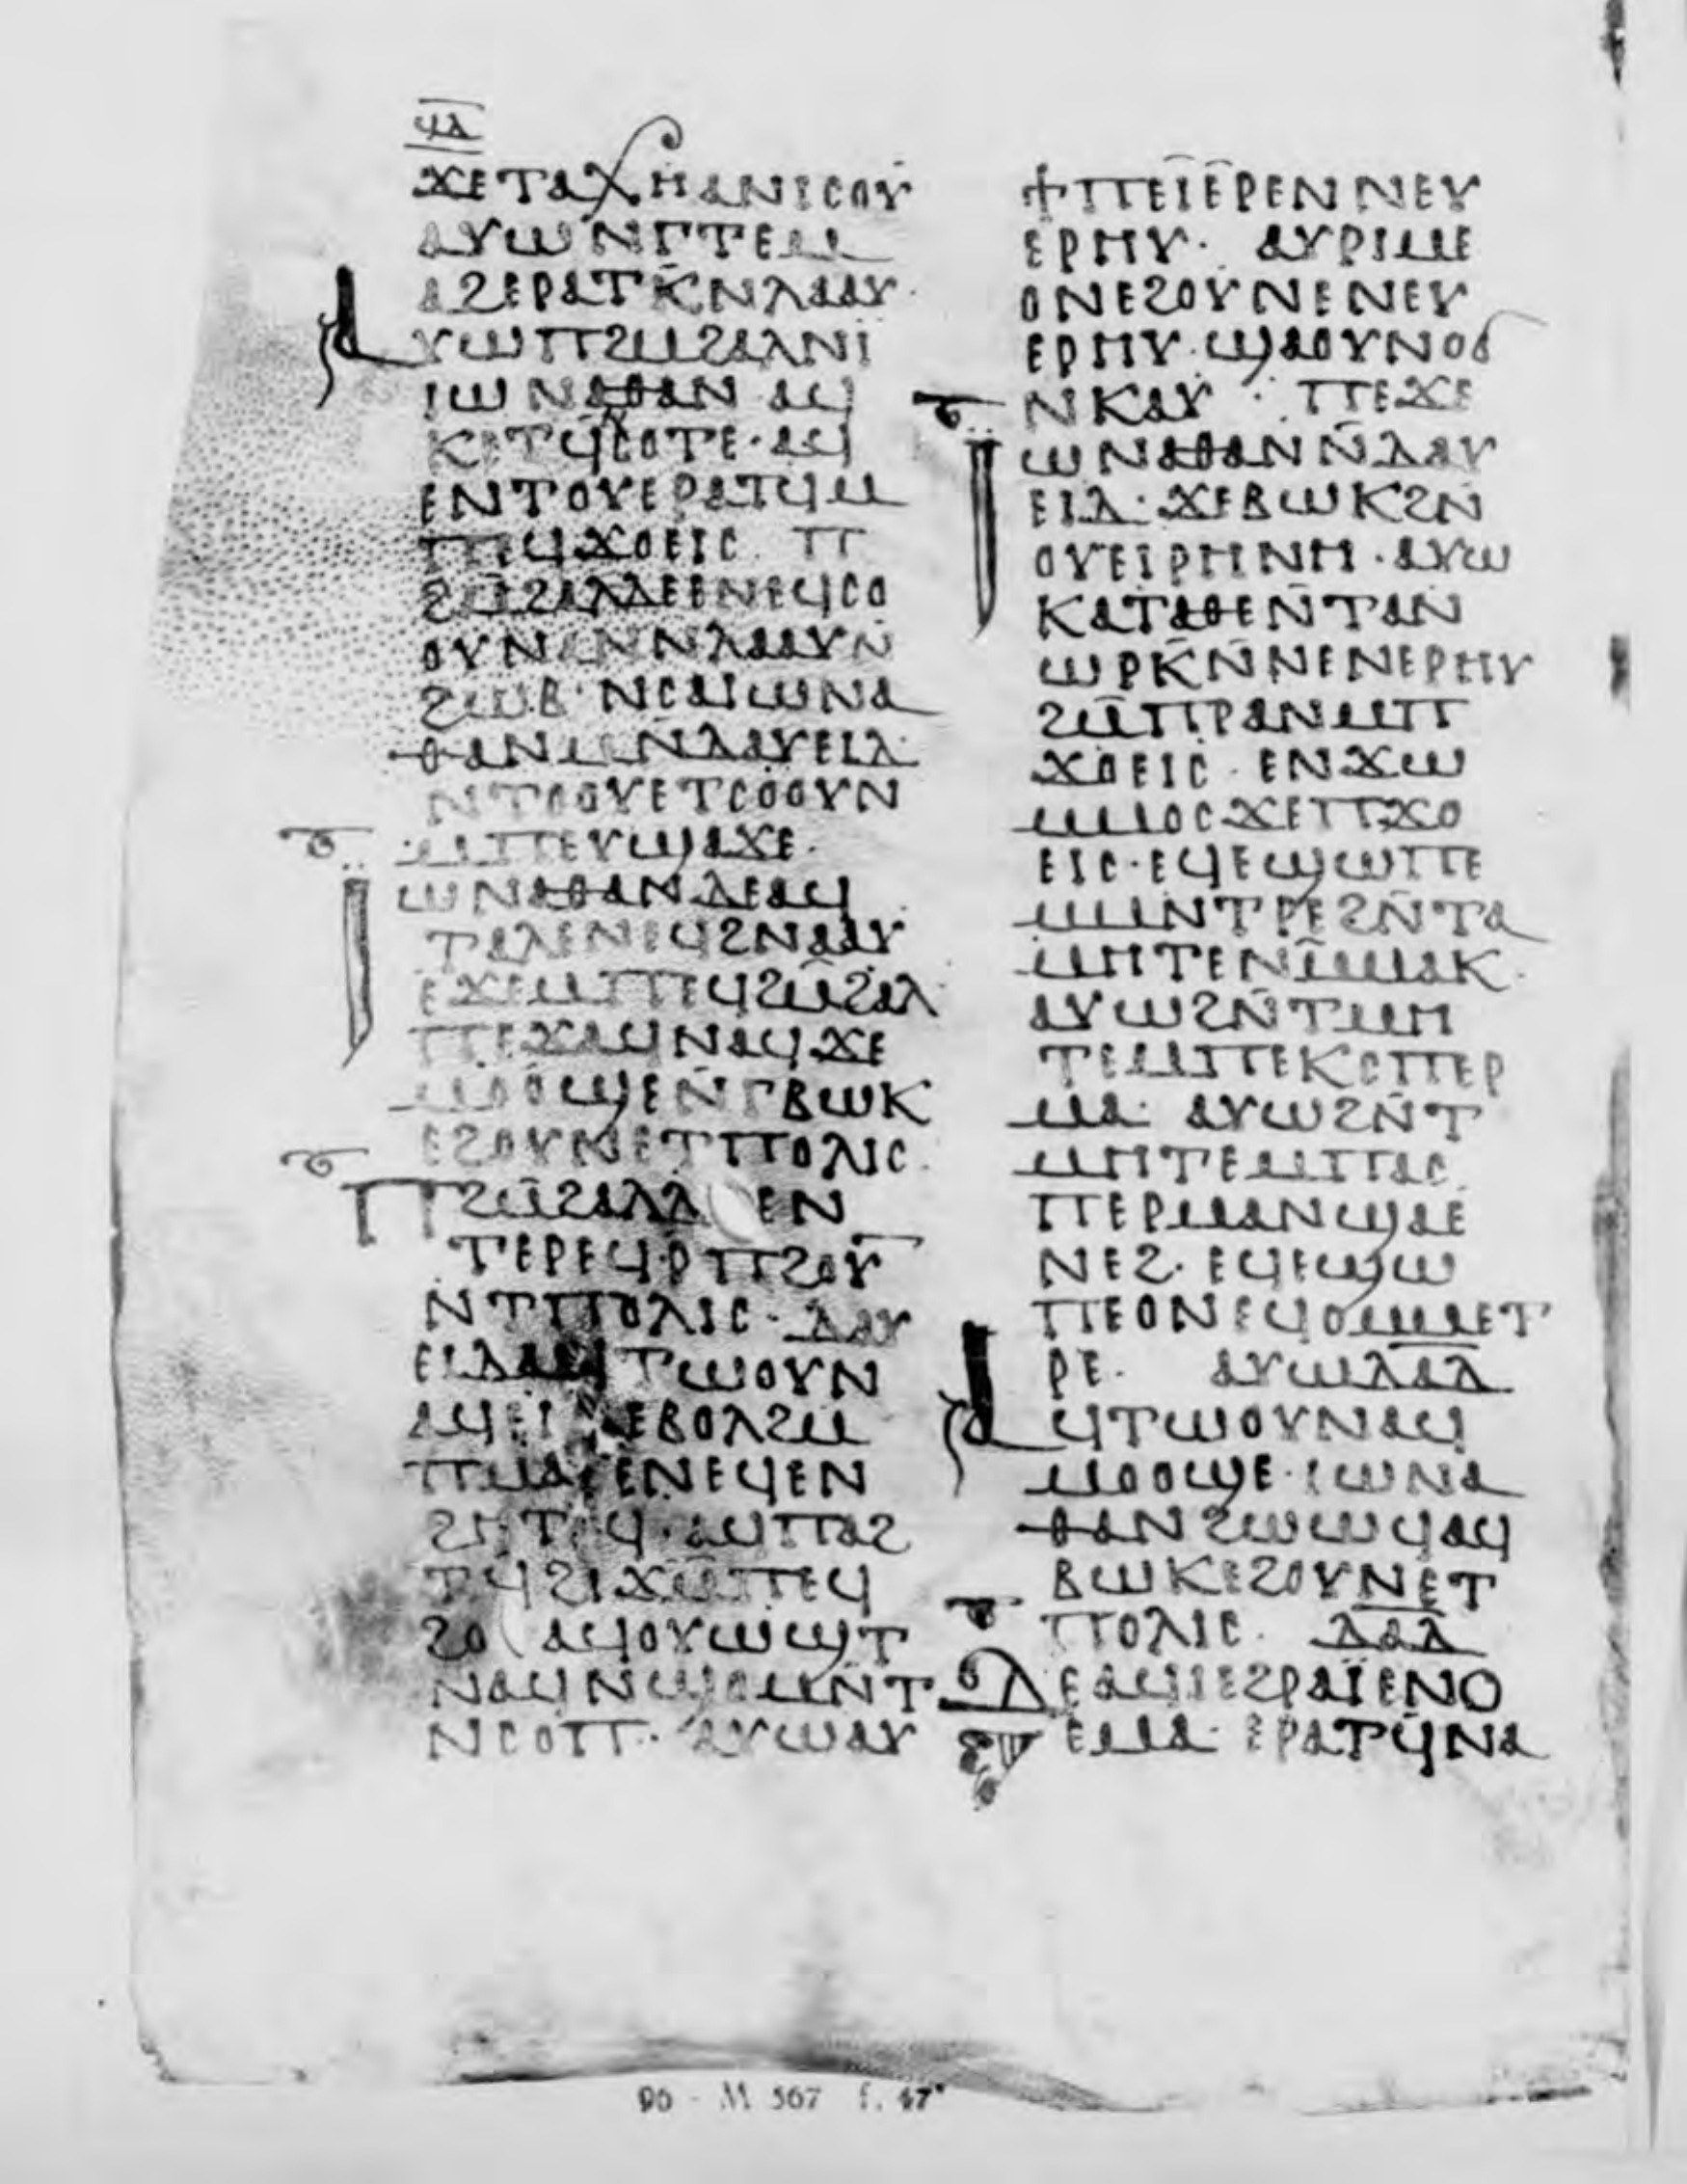 ϥⲁ
ϫⲉⲧⲁⲭⲏⲁⲛⲓⲥⲟⲩ
ⲁⲩⲱⲛⲅⲧⲉⲙ
ⲁϩⲉⲣⲁⲧⲕ̄ⲛⲗⲁⲁⲩ
ⲁⲩⲱⲡϩⲙϩⲁⲗⲛⲓ
ⲓⲱⲛⲁⲑⲁⲛ ⲁϥ
ⲕⲉⲧϥⲥⲟⲧⲉ· ⲁϥ
ⲉⲛⲧⲟⲩⲉⲣⲁⲧϥⲙ
ⲡⲉϥϫⲟⲉⲓⲥ· ⲡ
ϩⲙ̄ϩⲁⲗⲇⲉⲉⲛⲉϥⲥⲟ
ⲟⲩⲛⲁⲛⲛⲗⲁⲁⲩⲛ̄
ϩⲱⲃ· ⲛⲥⲁⲓⲱⲛⲁ
ⲑⲁⲛⲙⲛ̄ⲇⲁⲩⲉⲓⲇ·
ⲛⲧⲟⲟⲩⲉⲧⲥⲟⲟⲩⲛ
ⲙⲡⲉⲩϣⲁϫⲉ·
ⲓ̈ⲱⲛⲁⲑⲁⲛⲇⲉⲁϥ
ⲧⲁⲗⲉⲛⲉϥϩⲛⲁⲁⲩ
ⲉϫⲉⲙⲡⲉϥϩⲙ̄ϩⲁⲗ
ⲡⲉϫⲁϥⲛⲁϥϫⲉ
ⲙⲟⲟϣⲉⲛ̄ⲅⲃⲱⲕ
ⲉϩⲟⲩⲛⲉⲧⲡⲟⲗⲓⲥ·
ⲡϩⲙ̄ϩⲁⲗⲇ ⲉⲛ
ⲧⲉⲣⲉϥⲣⲡϩⲟⲩ
ⲛⲧⲡⲟⲗⲓⲥ· ⲇⲁⲩ
ⲉⲓⲇⲁϥⲧⲱⲟⲩⲛ
ⲁϥⲉⲓ ⲉⲃⲟⲗϩⲙ
ⲡⲙⲁⲉⲛⲉϥⲉⲛ
ϩⲏⲧϥ· ⲁϥⲡⲁϩ
ⲧϥ̄ϩⲓϫⲙ̄ⲡⲉϥ
ϩⲟ ⲁϥⲟⲩⲱϣⲧ
ⲛⲁϥⲛϣⲟⲙⲛ̄ⲧ
ⲛⲥⲟⲡ· ⲁⲩⲱⲁⲩ
ϯⲡⲉⲓ̈ⲉⲣⲉⲛⲛⲉⲩ
ⲉⲣⲏⲩ· ⲁⲩⲣⲓⲙⲉ
ⲟⲛⲉϩⲟⲩⲛⲉⲛⲉⲩ
ⲉⲣⲏⲩ· ϣⲁⲟⲩⲛⲟϭ
ⲛⲕⲁⲩ· ⲡⲉϫⲉ
ⲓ̈ⲱⲛⲁⲑⲁⲛⲛ̄ⲇⲁⲩ
ⲉⲓⲇ· ϫⲉⲃⲱⲕϩⲛ̄
ⲟⲩⲉⲓⲣⲏⲛⲏ· ⲁⲩⲱ
ⲕⲁⲧⲁⲑⲉⲛ̄ⲧⲁⲛ
ⲱⲣⲕ̄ⲛ̄ⲛⲉⲛⲉⲣⲏⲩ
ϩⲙ̄ⲡⲣⲁⲛⲙⲡ
ϫⲟⲉⲓⲥ· ⲉⲛϫⲱ
ⲙⲙⲟⲥϫⲉⲡϫⲟ
ⲉⲓⲥ· ⲉϥⲉϣⲱⲡⲉ
ⲙⲙⲛⲧⲣⲉϩⲛ̄ⲧⲁ
ⲙⲏⲧⲉⲛⲙ̄ⲙⲁⲕ·
ⲁⲩⲱϩⲛ̄ⲧⲙⲏ
ⲧⲉⲙⲡⲉⲕⲥⲡⲉⲣ
ⲙⲁ· ⲁⲩⲱϩⲛ̄ⲧ
ⲙⲏⲧⲉⲙⲡⲁⲥ
ⲡⲉⲣⲙⲁⲛϣⲁⲉ
ⲛⲉϩ· ⲉϥⲉϣⲱ
ⲡⲉⲟⲛⲉϥⲟⲙⲙⲉⲧ
ⲣⲉ· ⲁⲩⲱⲇⲁⲇ
ⲁϥⲧⲱⲟⲩⲛⲁϥ
ⲙⲟⲟϣⲉ· ⲓⲱⲛⲁ
ⲑⲁⲛϩⲱⲱϥⲁϥ
ⲃⲱⲕⲉϩⲟⲩⲛⲉⲧ
ⲡⲟⲗⲓⲥ· ⲇⲁⲇ
ⲇⲉⲁϥⲓⲉϩⲣⲁⲓ̈ⲉⲛⲟ
ⲉⲙⲙⲁ· ⲉⲣⲁⲧϥ̄ⲛⲁ